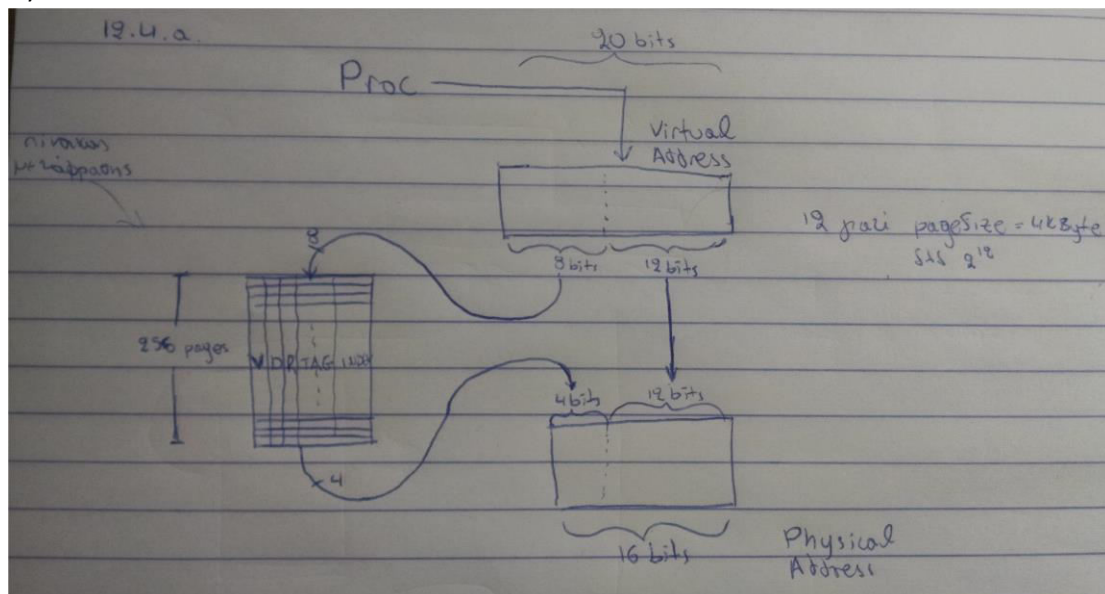 12.4.a.
20 bits
Proc
Virtual
Address
πίνακας
μετάφρασης
12 γιατί pageSize = 4kByte
δλδ 2¹²
8
8bits 12bits
256 pages
V D R TAG
4bits 12bits
4
16 bits
Physical
Address